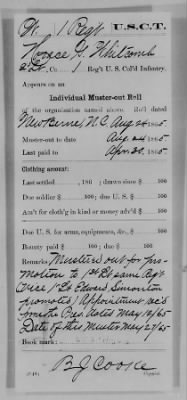 W. 1 Regt U.S.C.T.
Horace G. Whitcomb
2 Lt., Co. 1 Reg't U. S. Col'd Infantry.
Appears on an
Individual Muster-out Roll
of the organization named above. Roll dated
New Berne, N.C. Aug 24, 1865.
Muster-out to date Aug 24, 1865
Last paid to Apr. 30, 1865
Clothing account:
Last settled , 186 ; drawn since $ 100
Due soldier $ 100; due U. S. $ 100
Am't for cloth'g in kind or money adv'd $ 100
Due U. S. for arms, equipments, &c., $ 100
Bounty paid $ 100; due $ 100
Remarks: Musters out for pro-
motion to 1st Lt same Regt
Vice 1st Lt Edward Simonton
promoted. Appointment rec'd
from the Pres. dated May 10/65
Date of this Muster May 27/65
Book mark:
B J Cooke
Copyist.